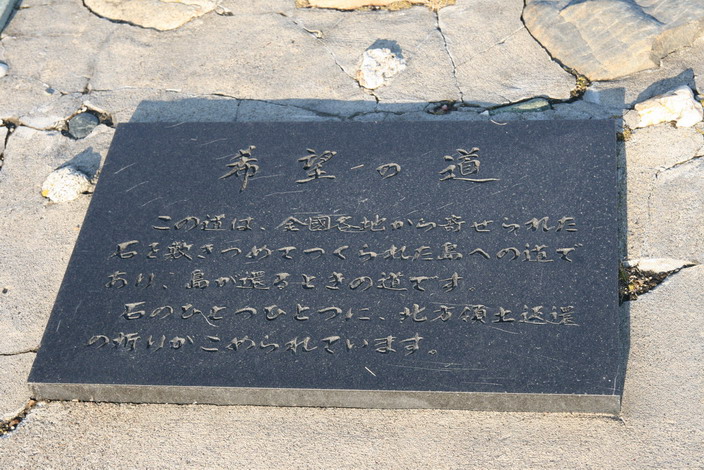 希望の道
この道は、全國各地から寄せられた
石を敷きつめてつくられた島への道で
あり、島が還るときの道です
石のひとつひとつに、北方領土返還
の祈りがこめられています。